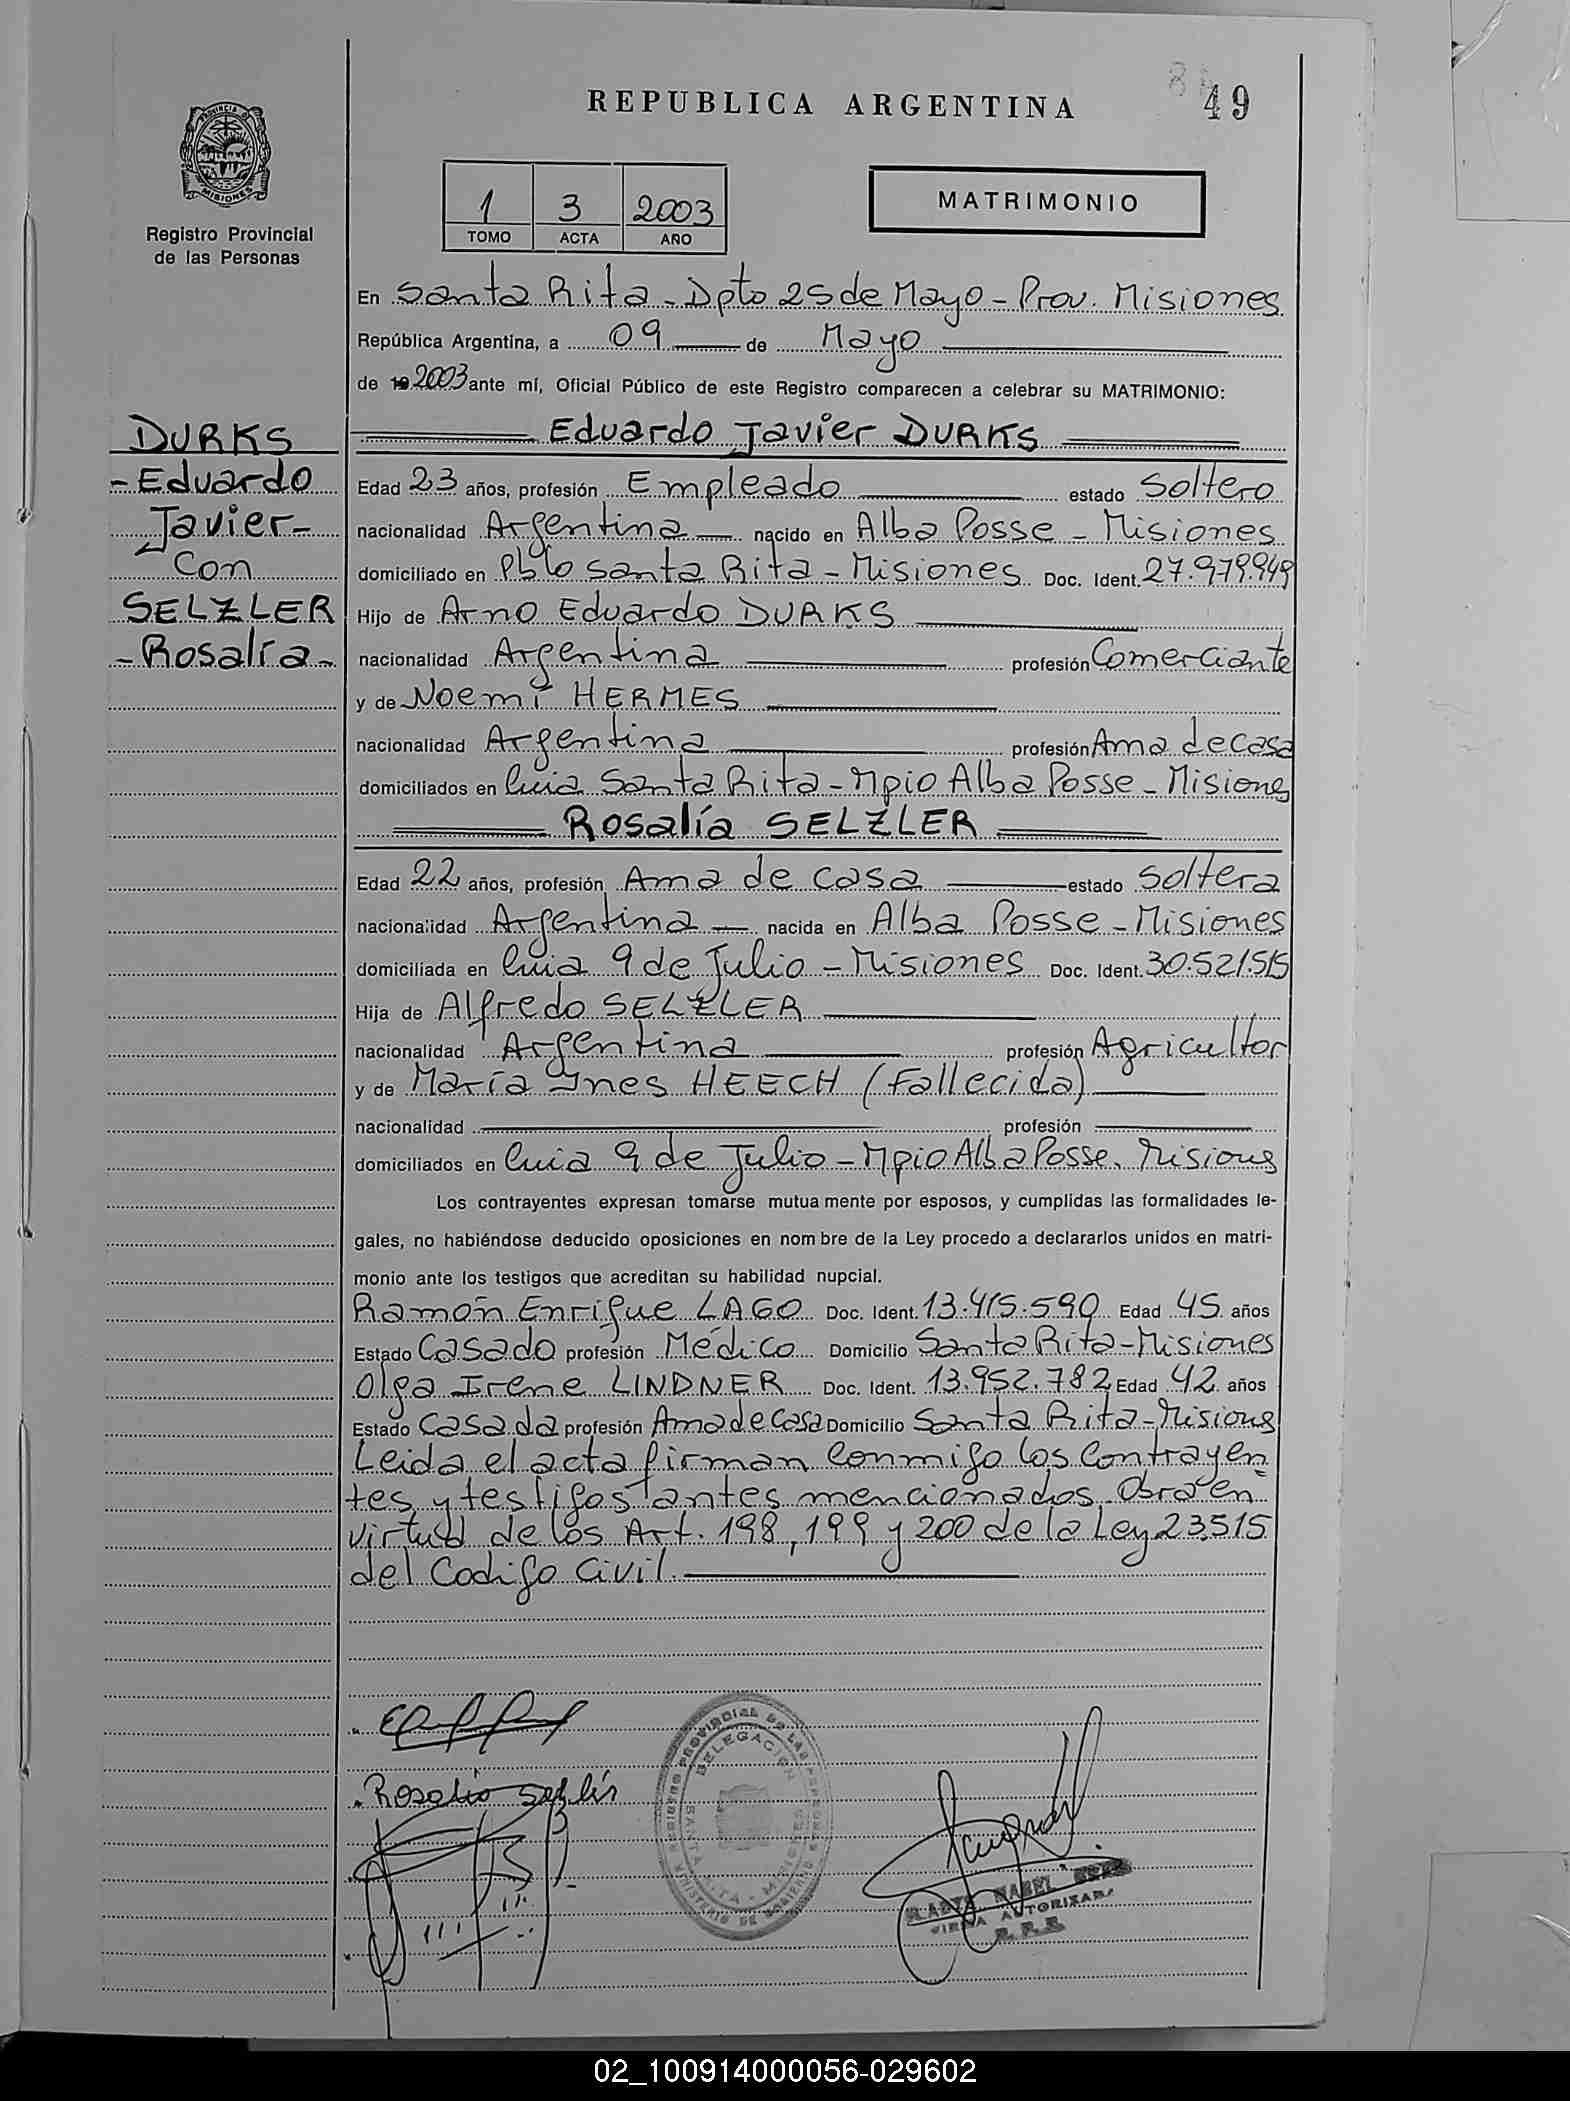 REPUBLICA ARGENTINA
49
PROVINCIA
MISIONES
Registro Provincial
de las Personas
1 3 2003
TOMO ACTA AÑO
MATRIMONIO
En Santa Rita - Dpto 25 de Mayo - Prov. Misiones
República Argentina, a 09 de Mayo
de 19 2003 ante mí, Oficial Público de este Registro comparecen a celebrar su MATRIMONIO:
DURKS
- Eduardo
Javier -
Con
SELZLER
- Rosalía -
Eduardo Javier DURKS
Edad 23 años, profesión Empleado estado Soltero
nacionalidad Argentina nacido en Alba Posse - Misiones
domiciliado en Pblo Santa Rita - Misiones Doc. Ident. 27.979.949
Hijo de Arno Eduardo DURKS
nacionalidad Argentina profesión Comerciante
y de Noemí HERMES
nacionalidad Argentina profesión Ama de casa
domiciliados en Cnia Santa Rita - Mpio Alba Posse - Misiones
Rosalía SELZLER
Edad 22 años, profesión Ama de casa estado Soltera
nacionalidad Argentina nacida en Alba Posse - Misiones
domiciliada en Cnia 9 de Julio - Misiones Doc. Ident. 30.521.515
Hija de Alfredo SELZLER
nacionalidad Argentina profesión Agricultor
y de María Ynes HEECH (Fallecida)
nacionalidad profesión
domiciliados en Cnia 9 de Julio - Mpio Alba Posse. Misiones
Los contrayentes expresan tomarse mutua mente por esposos, y cumplidas las formalidades le-
gales, no habiéndose deducido oposiciones en nom bre de la Ley procedo a declararlos unidos en matri-
monio ante los testigos que acreditan su habilidad nupcial.
Ramón Enrique LAGO Doc. Ident. 13.415.590 Edad 45 años
Estado Casado profesión Médico Domicilio Santa Rita - Misiones
Olga Irene LINDNER Doc. Ident. 13.952.782 Edad 42 años
Estado Casada profesión Ama de Casa Domicilio Santa Rita - Misiones
Leida el acta firman conmigo los contrayen
tes y testigos antes mencionados. Obra en
virtud de los Art. 198, 199 y 200 de la Ley 23.515
del Codigo Civil.
REGISTRO PROVINCIAL DE LAS PERSONAS
DELEGACION
SANTA RITA - MISIONES
MINISTERIO DE GOBIERNO
Rosalía Selzler
GLADYS MABEL
FIRMA AUTORIZADA
02_100914000056-029602